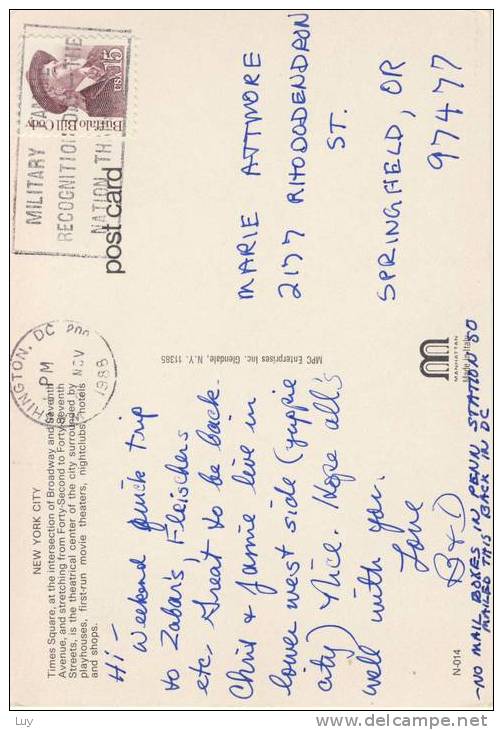 NEW YORK CITY
Times Square, at the intersection of Broadway and Seventh
Avenue, and stretching from Forty-Second to Forty-Seventh
Streets, is the theatrical center of the city surrounded by
playhouses, first-run movie theaters, nightclubs, hotels
and shops.
Hi-
Weekend quick trip
to Zabar's, Fleischers
etc. Great to be back.
Chris & Jamie live in
lower west side (yuppie
city) Nice. Hope all's
well with you.
Love
B & D
-NO MAIL BOXES IN PENN STATION SO
MAILED THIS BACK IN DC
N-014
HINGTON, DC
PM
NOV
1988
MPC Enterprises Inc. Glendale, N.Y. 11385
post card
MILITARY
RECOGNITION
NATION
Buffalo Bill Cody
USA 15
MARIE ATTMORE
2177 RHODODENDRON
ST.
SPRINGFIELD, OR
97477
MANHATTAN
Made in Italy
Luy
delcampe.net